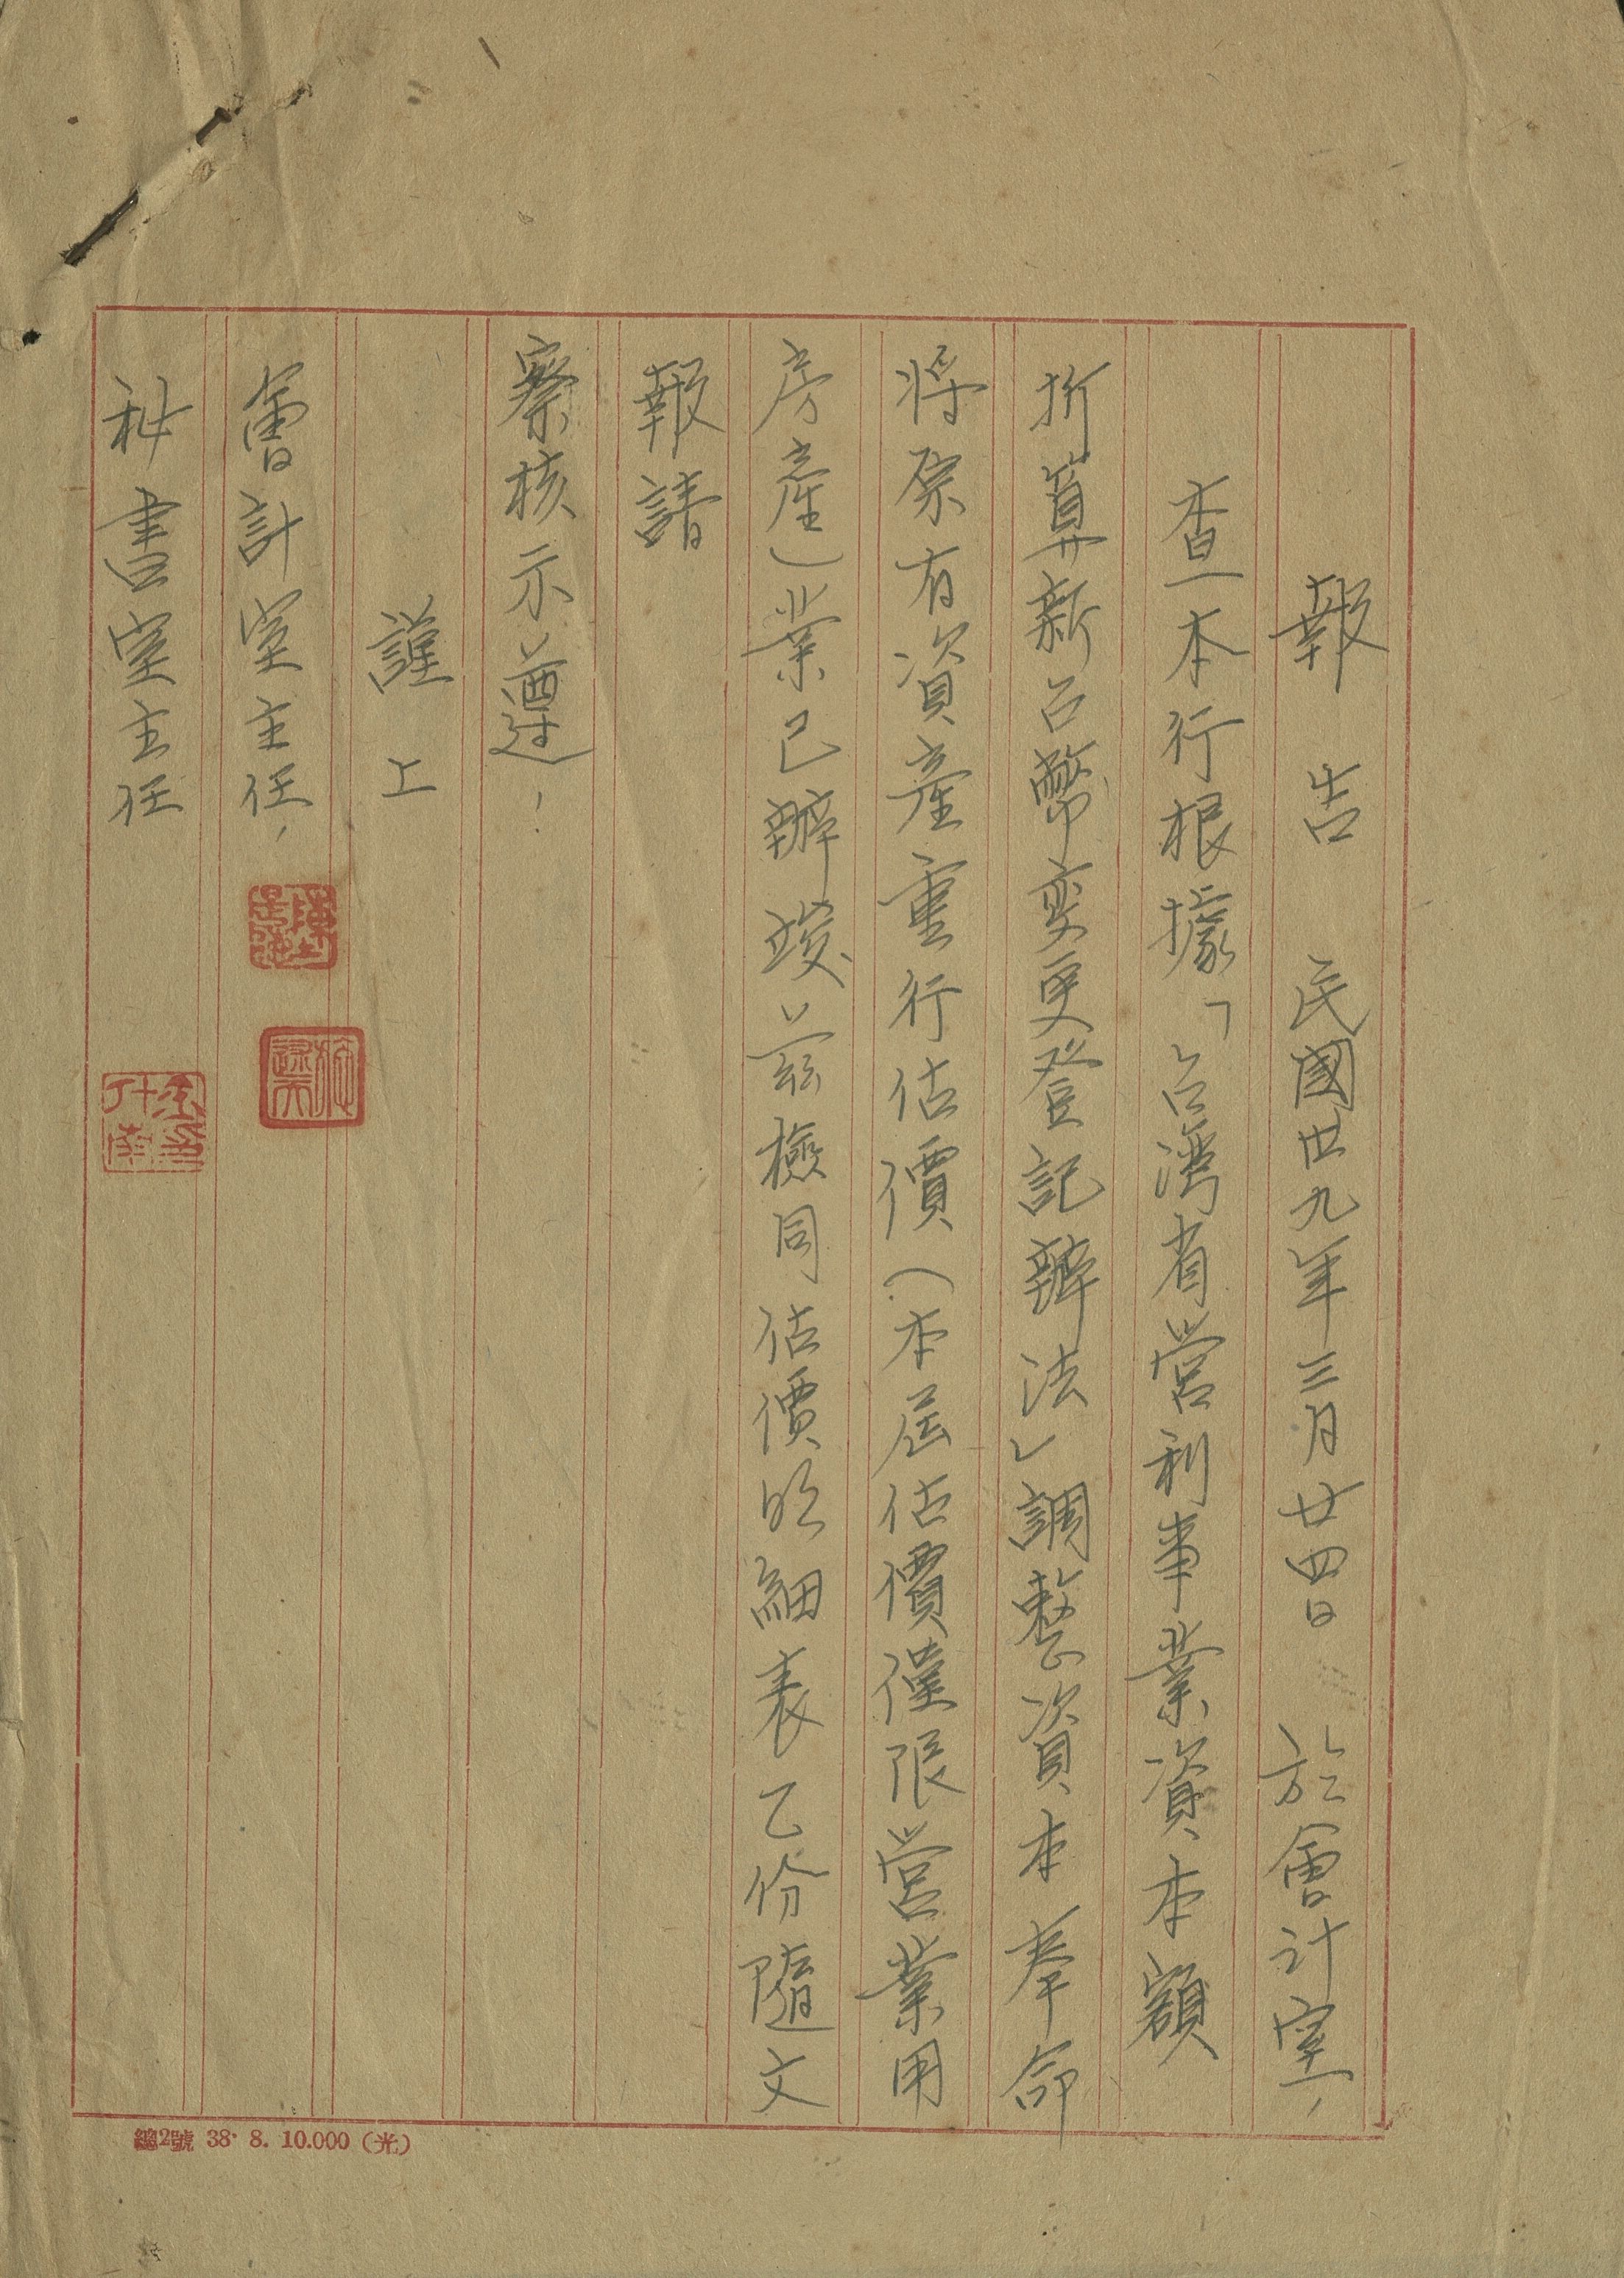 報告　民國卅九年三月廿四日　於會計室
查本行根據「台灣省營利事業資本額
折算新台幣變更登記辦法」調整資本奉命
将原有資產重行估價（本屆估價僅限營業用
房產）業已辦竣茲檢同估價明細表乙份隨文
報請
察核示遵
謹上
會計室主任
秘書室主任
總2號 38. 8. 10.000（光）